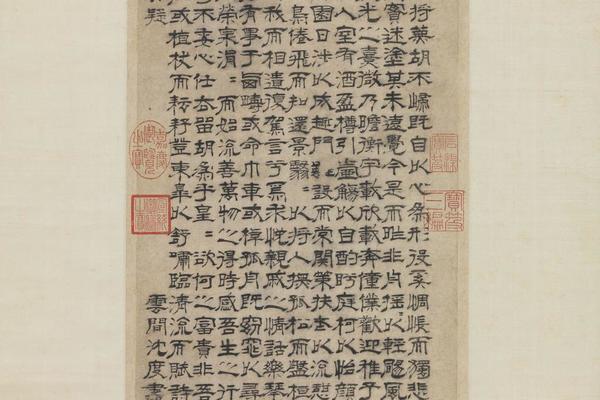 將蕪胡不歸既自以心為形役奚惆悵而獨悲
實迷塗其未遠覺今是而昨非舟搖〻以輕颺風
光之熹微乃瞻衡宇載欣載奔僮僕歡迎稚子
入室有酒盈樽引壺觴以自酌眄庭柯以怡顏
園日涉以成趣門雖設而常關策扶老以流憩
鳥倦飛而知還景翳〻以將入撫孤松而盤桓
我而相遺復駕言兮焉求悅親戚之情話樂琴
有事于西疇或命巾車或棹孤舟既窈窕以尋
榮泉涓〻而始流善萬物之得時感吾生之行
不委心任去留胡為乎皇〻欲何之富貴非吾
或植杖而耘耔登東皋以舒嘯臨清流而賦詩
疑
雲間沈度書